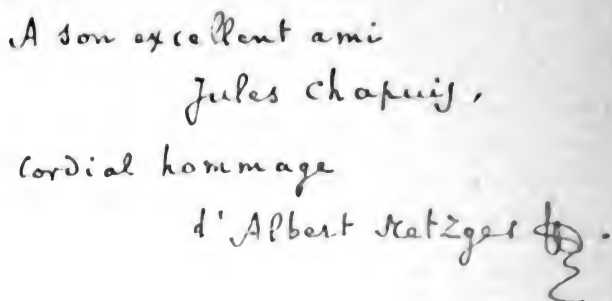 A son excellent ami
Jules Chapuis,
Cordial hommage
d'Albert Metzger.